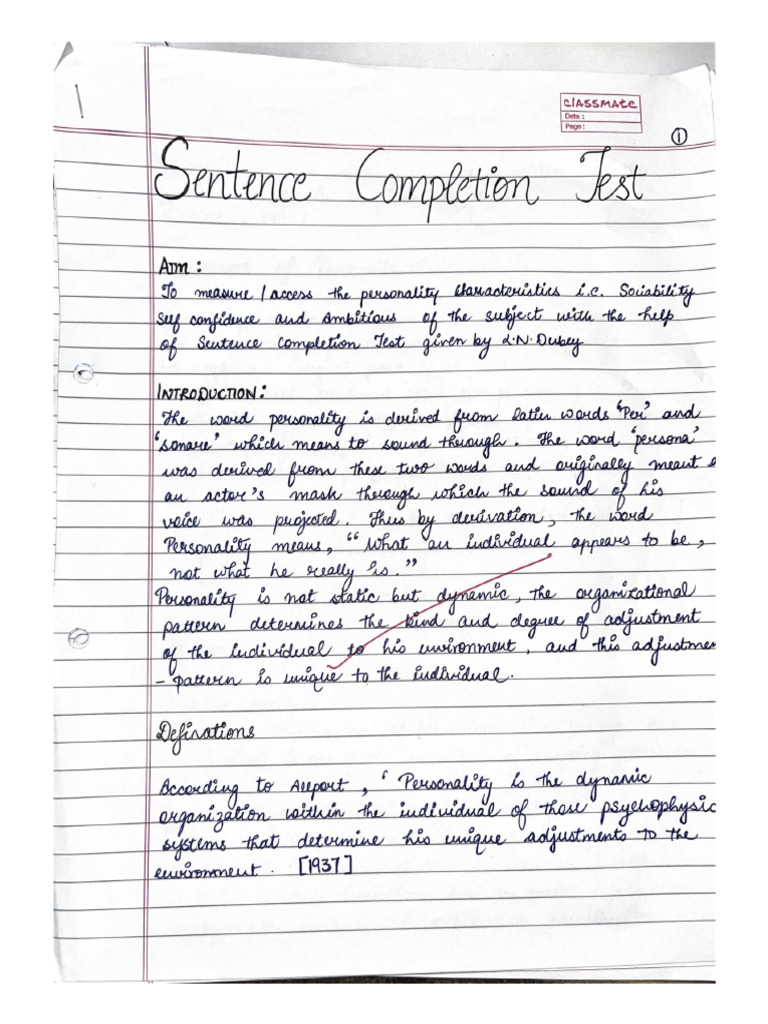 classmate
Date :
Page :
1
Sentence Completion Test
AIM :
To measure / access the personality characteristics i.e. Sociability
Self confidence and Ambitious of the subject with the help
of Sentence Completion Test given by L.N. Dubey
INTRODUCTION :
The word personality is derived from latin words 'Per' and
'sonare' which means to sound through. The word 'persona'
was derived from these two words and originally meant
an actor's mask through which the sound of his
voice was projected. Thus by derivation, the word
Personality means, "What an individual appears to be,
not what he really is."
Personality is not static but dynamic, the organizational
pattern determines the kind and degree of adjustment
of the individual to his environment, and this adjustmen
- pattern is unique to the individual.
Definations
According to Allport, ' Personality is the dynamic
organization within the individual of those psychophysic
systems that determine his unique adjustments to the
environment. [1937]